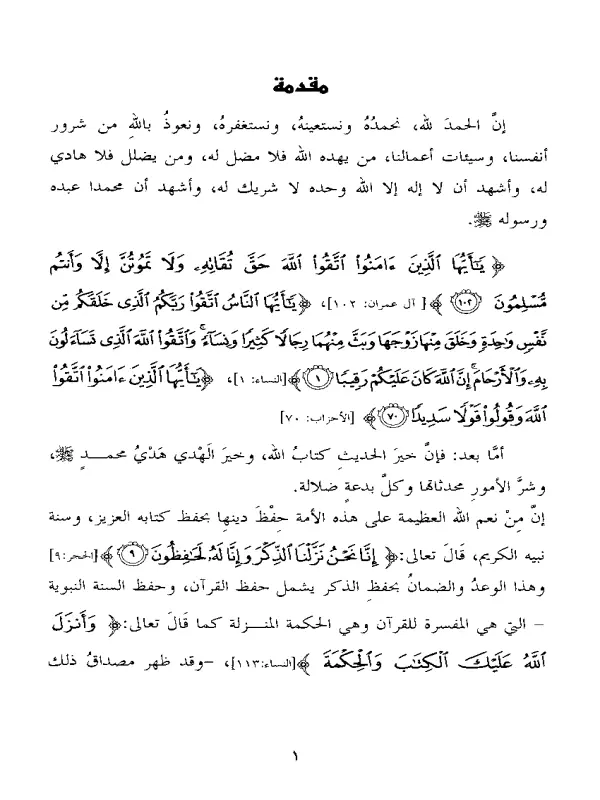 مقدمة
إنَّ الحمدَ لله، نحمدُهُ ونستعينهُ، ونستغفرهُ، ونعوذُ باللهِ من شرور
أنفسنا، وسيئات أعمالنا، من يهده الله فلا مضل له، ومن يضلل فلا هادي
له، وأشهد أن لا إله إلا الله وحده لا شريك له، وأشهد أن محمدا عبده
ورسوله ﷺ.
﴿ يَٰٓأَيُّهَا ٱلَّذِينَ ءَامَنُوا۟ ٱتَّقُوا۟ ٱللَّهَ حَقَّ تُقَاتِهِۦ وَلَا تَمُوتُنَّ إِلَّا وَأَنتُم
مُّسْلِمُونَ ١٠٢ ﴾[ آل عمران: ١٠٢]، ﴿يَٰٓأَيُّهَا ٱلنَّاسُ ٱتَّقُوا۟ رَبَّكُمُ ٱلَّذِى خَلَقَكُم مِّن
نَّفْسٍ وَٰحِدَةٍ وَخَلَقَ مِنْهَا زَوْجَهَا وَبَثَّ مِنْهُمَا رِجَالًا كَثِيرًا وَنِسَآءً ۚ وَٱتَّقُوا۟ ٱللَّهَ ٱلَّذِى تَسَآءَلُونَ
بِهِۦ وَٱلْأَرْحَامَ ۚ إِنَّ ٱللَّهَ كَانَ عَلَيْكُمْ رَقِيبًا ١ ﴾[النساء: ١]، ﴿يَٰٓأَيُّهَا ٱلَّذِينَ ءَامَنُوا۟ ٱتَّقُوا۟
ٱللَّهَ وَقُولُوا۟ قَوْلًا سَدِيدًا ٧٠ ﴾ [الأحزاب: ٧٠]
أمَّا بعد: فإنَّ خيرَ الحديثِ كتابُ الله، وخيرَ الهْدي هَدْيُ محمــدٍ ﷺ،
وشرَّ الأمورِ محدثاتها وكلَّ بدعةٍ ضلالة.
إنّ مِنْ نعم الله العظيمة على هذه الأمة حِفْظَ دينها بحفظ كتابه العزيز، وسنة
نبيه الكريم، قَالَ تعالى: ﴿ إِنَّا نَحْنُ نَزَّلْنَا ٱلذِّكْرَ وَإِنَّا لَهُۥ لَحَٰفِظُونَ ٩ ﴾[الحجر:٩]
وهذا الوعدُ والضمانُ بحفظِ الذكر يشمل حفظَ القرآن، وحفظ السنة النبوية
– التي هي المفسرة للقرآن وهي الحكمة المنـزلة كما قَالَ تعالى:﴿ وَأَنزَلَ
ٱللَّهُ عَلَيْكَ ٱلْكِتَٰبَ وَٱلْحِكْمَةَ ﴾[النساء:١١٣]، –وقد ظهر مصداقُ ذلك
١